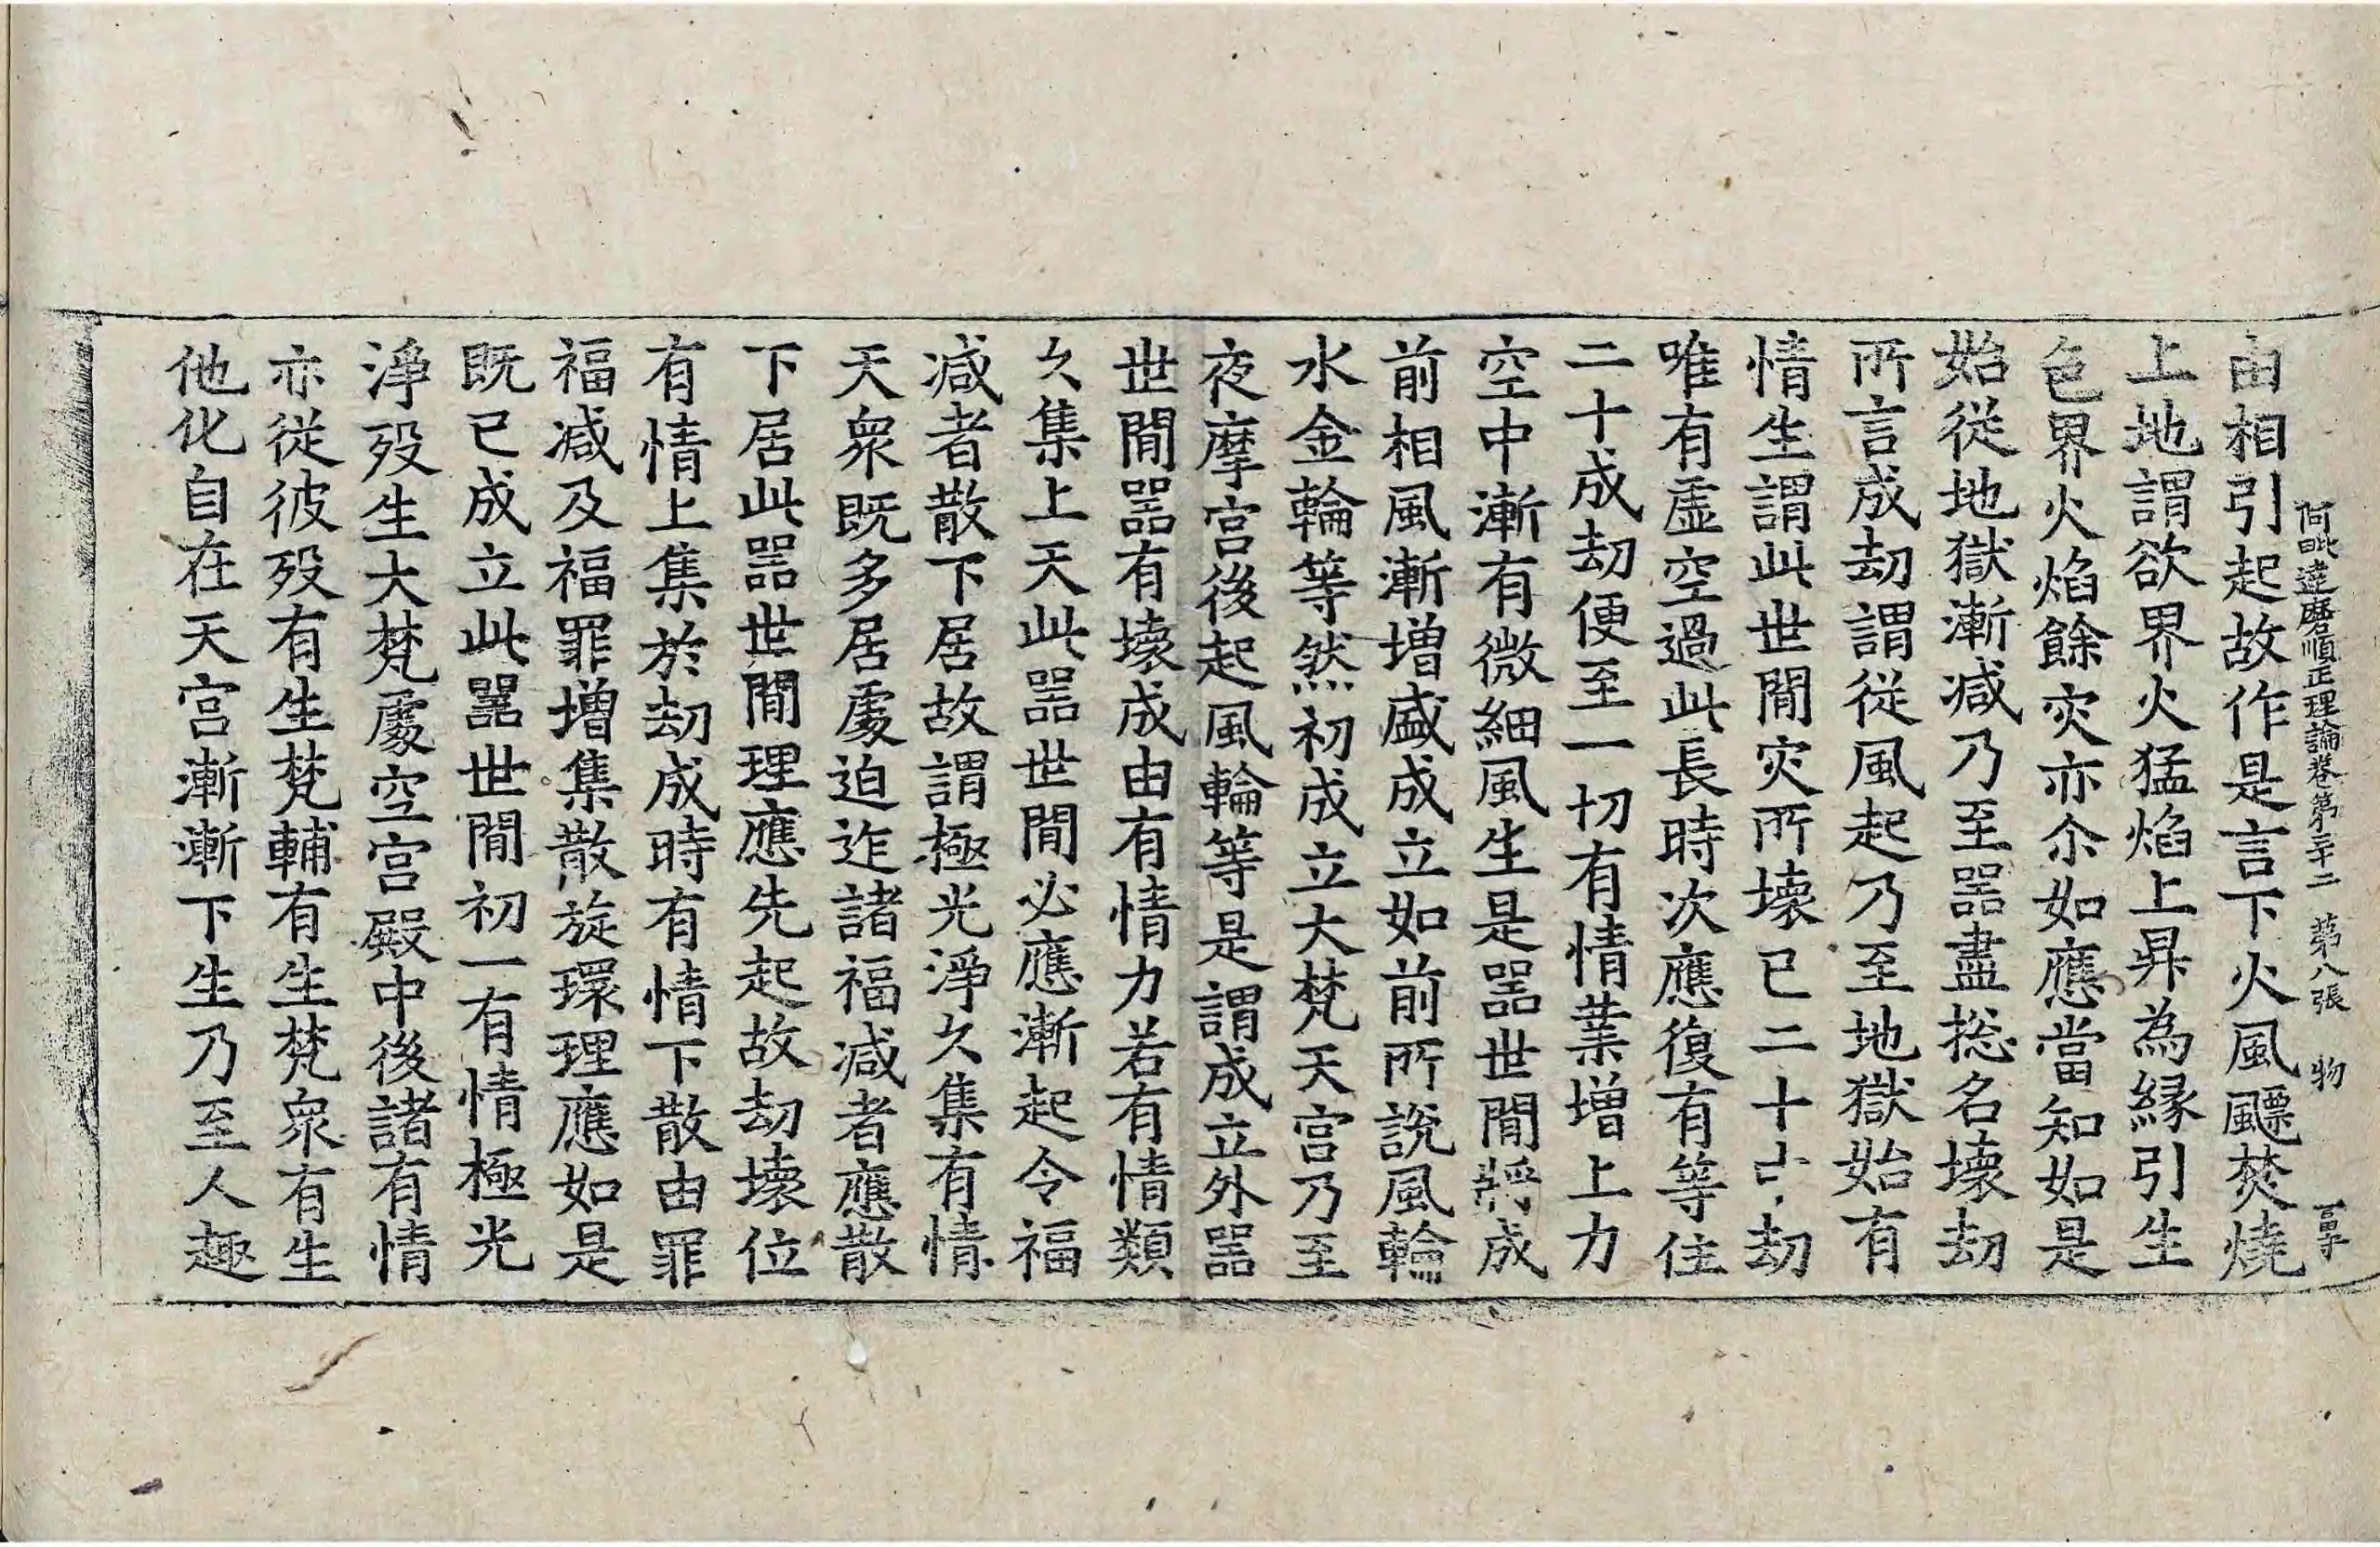 阿毗達磨順正理論卷第三十二 第八張 物
由相引起故作是言下火風飃焚燒
上地謂欲界火猛焰上昇為縁引生
色界火焰餘灾亦尒如應當知如是
始從地獄漸减乃至噐盡捴名壞劫
所言成劫謂從風起乃至地獄始有
情生謂此世間灾所壞已二十劫
唯有虛空過此長時次應復有等住
二十成劫便至一切有情業增上力
空中漸有微細風生是噐世間將成
前相風漸增盛成立如前所說風輪
水金輪等然初成立大梵天宮乃至
夜摩宮後起風輪等是謂成立外噐
世間噐有壞成由有情力若有情類
久集上天此噐世間必應漸起令福
减者散下居故謂極光淨久集有情
天衆既多居處迫迮諸福减者應散
下居此噐世間理應先起故劫壞位
有情上集於劫成時有情下散由罪
福减及福罪增集散旋環理應如是
既已成立此噐世間初一有情極光
淨歿生大梵處空宮殿中後諸有情
亦從彼歿有生梵輔有生梵衆有生
他化自在天宮漸漸下生乃至人趣